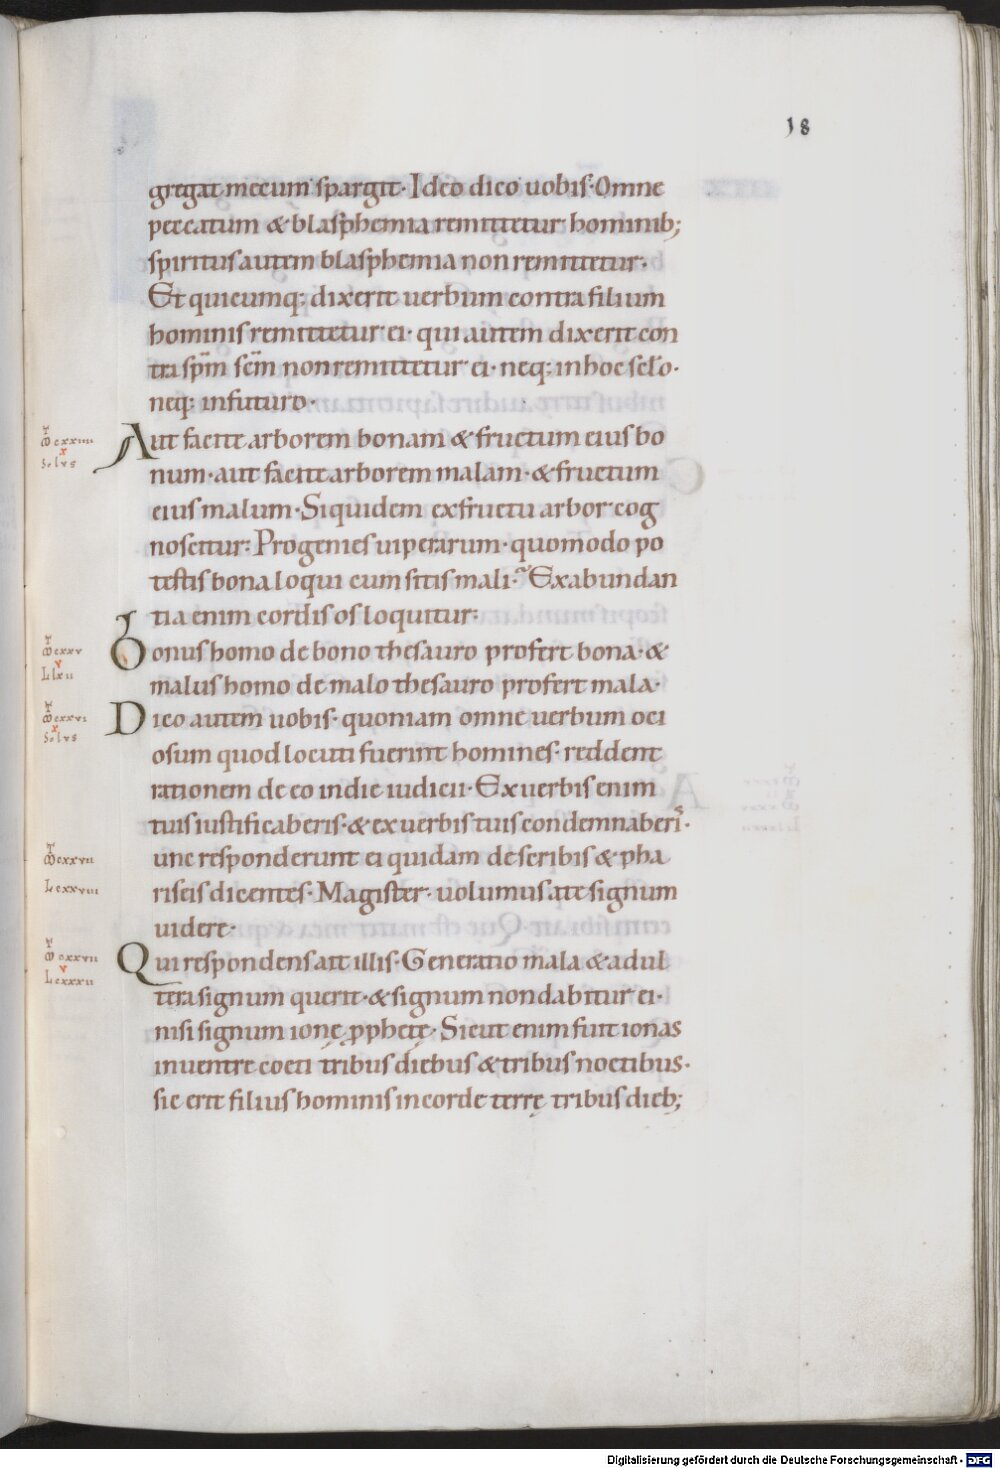 18
gregat mecum spargit· Ideo dico uobis· Omne
peccatum & blasphemia remittetur hominib;
spiritus autem blasphemia non remittetur·
Et quicumq; dixerit uerbum contra filium
hominis remittetur ei· qui autem dixerit con
tra sp̄m sc̄m non remittetur ei· neq; in hoc sclo·
neq; in futuro·
Aut facite arborem bonam & fructum eius bo
num· aut facite arborem malam· & fructum
eius malum· Siquidem ex fructu arbor cog
noscitur: Progenies uiperarum· quomodo po
testis bona loqui cum sitis mali? Ex abundan
tia enim cordis os loquitur:
Bonus homo de bono thesauro profert bona· &
malus homo de malo thesauro profert mala·
Dico autem uobis· quoniam omne uerbum oci
osum quod locuti fuerint homines· reddent
rationem de eo in die iudicii· Ex uerbis enim
tuis iustificaberis· & ex uerbis tuis condemnaberis·
unc responderunt ei quidam de scribis & pha
riseis dicentes· Magister· uolumus a te signum
uidere·
Qui respondens ait illis· Generatio mala & adul
tera signum querit· & signum non dabitur ei·
nisi signum ionę pphetę· Sicut enim fuit ionas
in uentre coeti tribus diebus & tribus noctibus·
sic erit filius hominis in corde terrę tribus dieb;
Digitalisierung gefördert durch die Deutsche Forschungsgemeinschaft - DFG